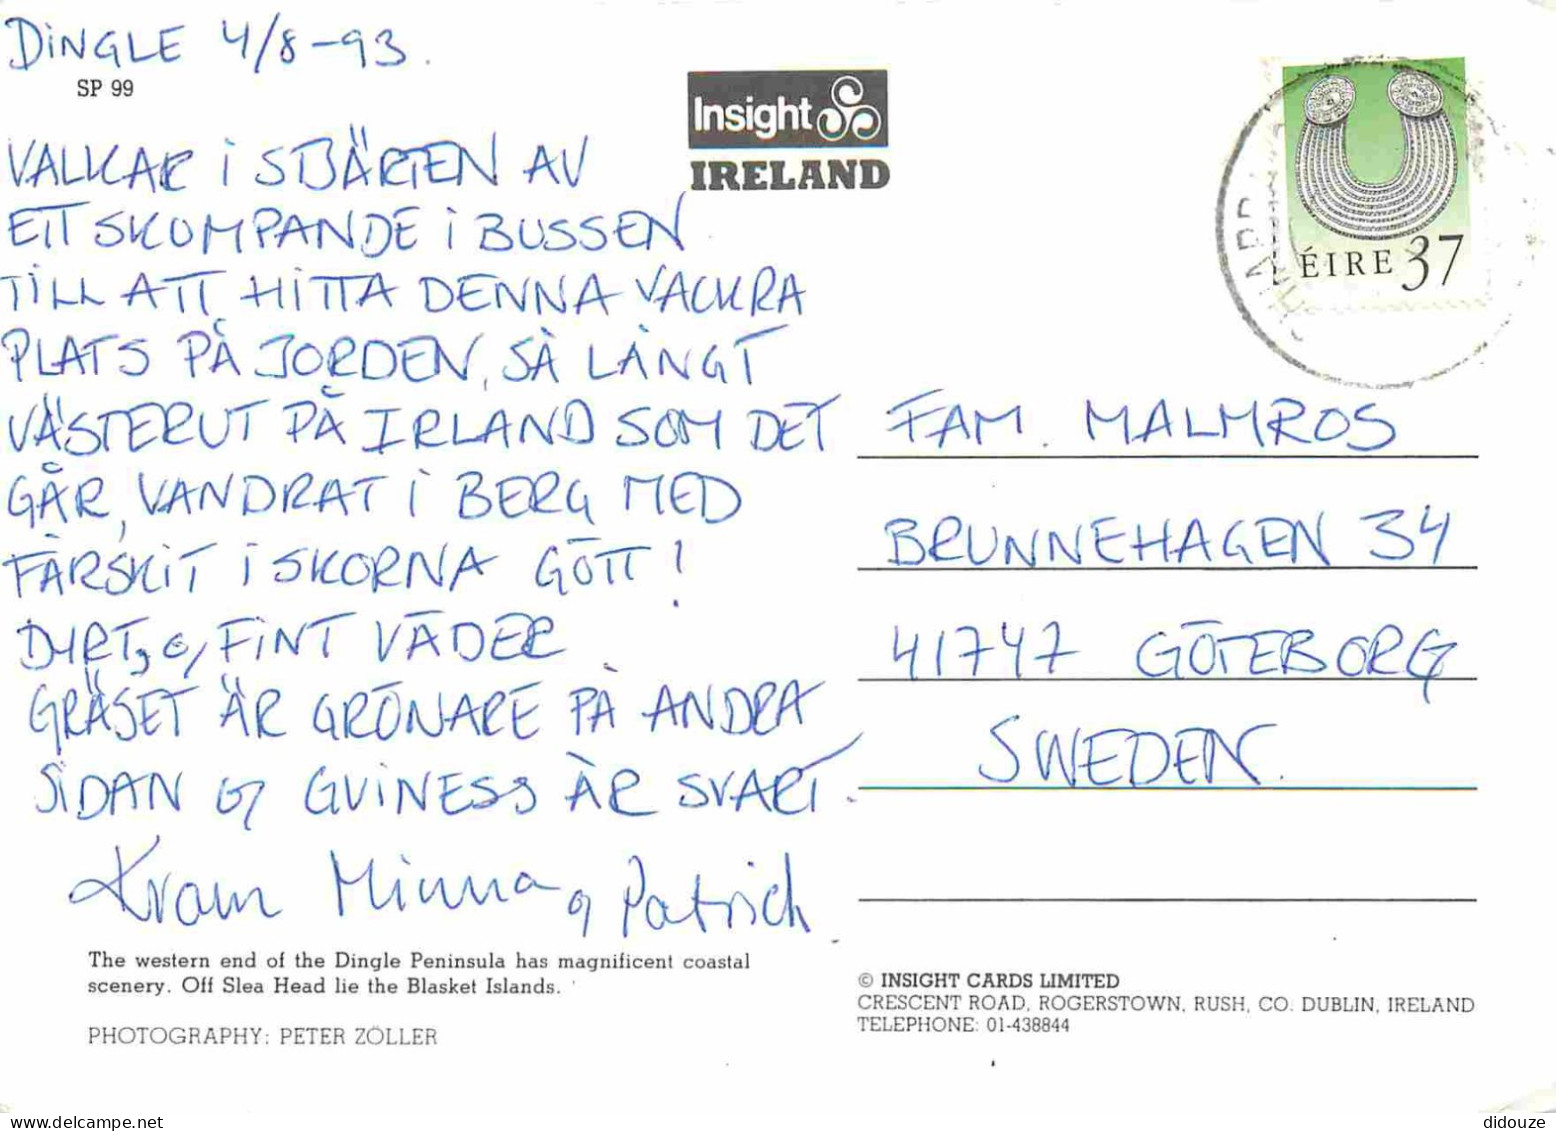 DINGLE 4/8-93.
SP 99
Insight
IRELAND
ÉIRE 37
VALKAR I STJÄRTEN AV
ETT SKUMPANDE I BUSSEN
TILL ATT HITTA DENNA VACKRA
PLATS PÅ JORDEN, SÅ LÅNGT
VÄSTERUT PÅ IRLAND SOM DET
GÅR, VANDRAT I BERG MED
FÅRSKIT I SKORNA GÖTT!
DYRT, o, FINT VÄDER
GRÄSET ÄR GRÖNARE PÅ ANDRA
SIDAN og GUINESS ÄR SVART.
Kram Minna o Patrick
FAM. MALMROS
BRUNNEHAGEN 34
41747 GÖTEBORG
SWEDEN.
The western end of the Dingle Peninsula has magnificent coastal
scenery. Off Slea Head lie the Blasket Islands.
PHOTOGRAPHY: PETER ZÖLLER
© INSIGHT CARDS LIMITED
CRESCENT ROAD, ROGERSTOWN, RUSH, CO. DUBLIN, IRELAND
TELEPHONE: 01-438844
delcampe.net
didouze